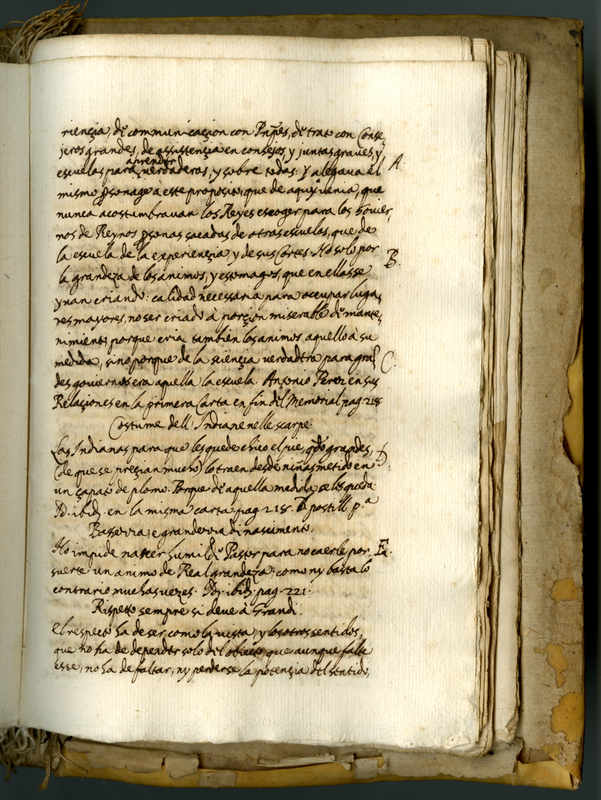 riençia, de communicaçion con Prinçipes, de trato con Conse,
jeros grandes, de assistençia en consejos, y juntas graues, y
aprender
escuelas para verdaderas, y sobre todas: Y allegaua el A.
mismo Psonage a este proposito, que de aquy venia, que
nunca acostumbrauan los Reyes escoger para los Gouier,
nos de Reynos psonas sacadas de otras escuelas, que de
la escuela de la experiençia, y de sus Cortes. No solo por B.
la grandeza de los animos, y estomagos, que en ellas se
yuan criando: calidad neçessaria para occupar luga,
res mayores, no ser criado a porçion miserable de mante,
nimiento, porque cria tambien los animos aquello a su
medida, sino porque de la sciençia verdadera para gran C.
des gouiernos era aquella la escuela. Antonio Perez en sus
Relaçiones en la primera Carta en fin del Memorial pag 218
Costume dell' Indiane nelle scarpe.
Las Indianas para que les quede chico el pie, grandes, D.
(de que se preçian mucho) lo traen desde niñas metido en
un çapato de plomo. Porque de aquella medida se les queda.
D. ibid: en la misma carta pag 218. postill. p.a
Bassezza, e grandezza di nascimento.
No impide nasçer humilde Pastor para no caerle por E.
suerte un animo de Real grandeza: como ny basta lo
contrario muchas vezes. ibid: pag. 221.
Rispetto sempre si deue à Grandi.
El respecto ha de ser como la vista, y los otros sentidos,
que no ha de depender solo del obiecto que aunque falte
este, no ha de faltar, ny perderse la potençia del sentido,